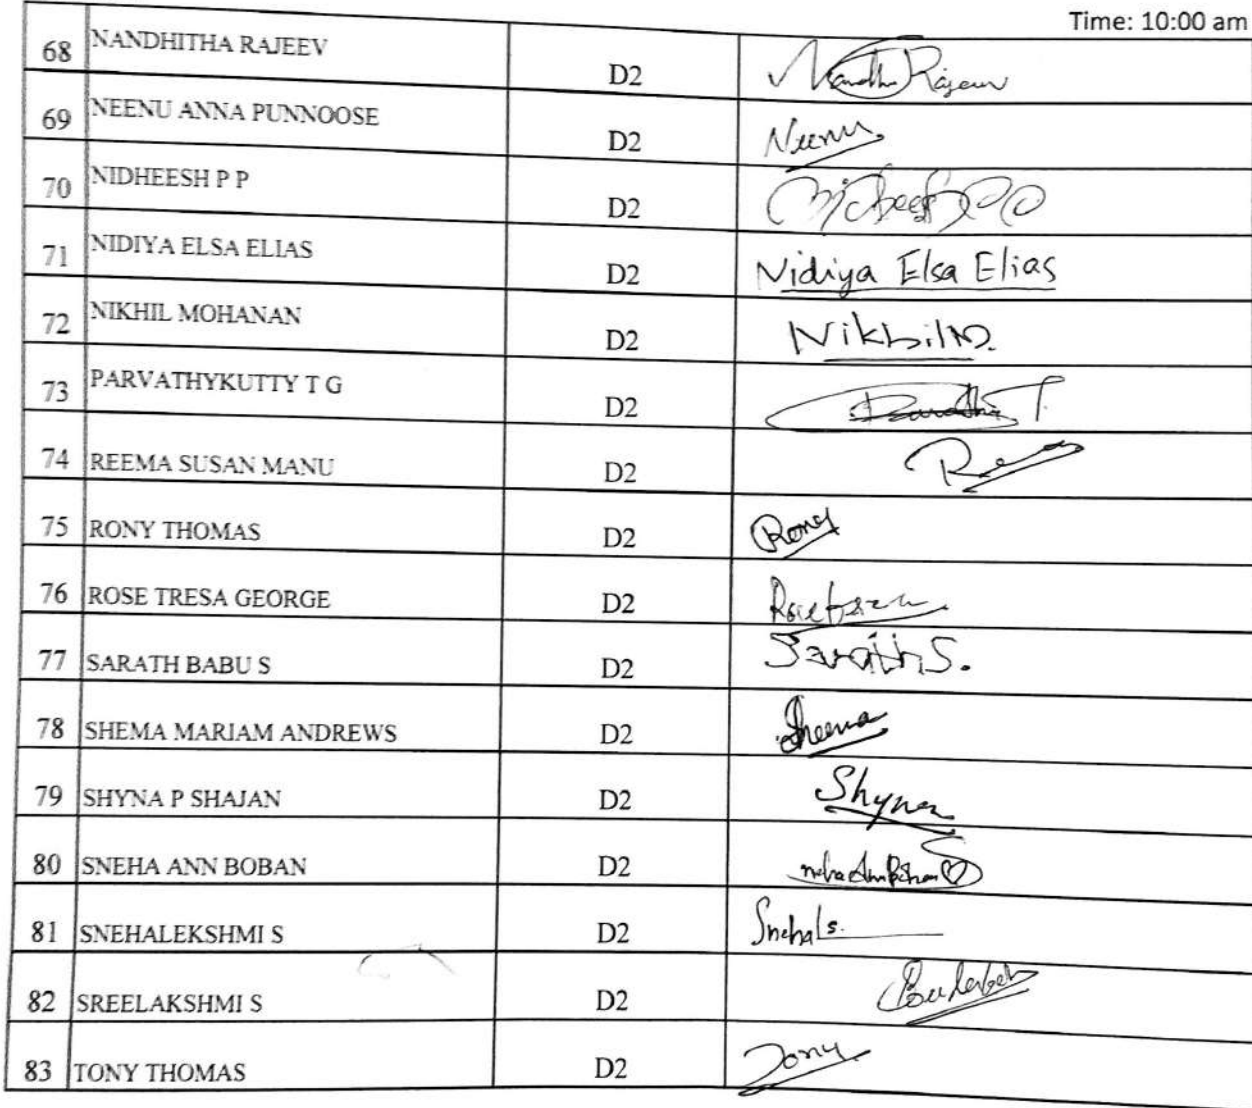 Time: 10:00 am
68 NANDHITHA RAJEEV D2 Nandhi Rajeev
69 NEENU ANNA PUNNOOSE D2 Neenu
70 NIDHEESH P P D2 Nidheesh PP
71 NIDIYA ELSA ELIAS D2 Nidiya Elsa Elias
72 NIKHIL MOHANAN D2 NikhilM.
73 PARVATHYKUTTY T G D2
74 REEMA SUSAN MANU D2
75 RONY THOMAS D2 Rony
76 ROSE TRESA GEORGE D2
77 SARATH BABU S D2 Sarath S.
78 SHEMA MARIAM ANDREWS D2 Sheema
79 SHYNA P SHAJAN D2 Shyna
80 SNEHA ANN BOBAN D2
81 SNEHALEKSHMI S D2 Snehal s.
82 SREELAKSHMI S D2
83 TONY THOMAS D2 Tony